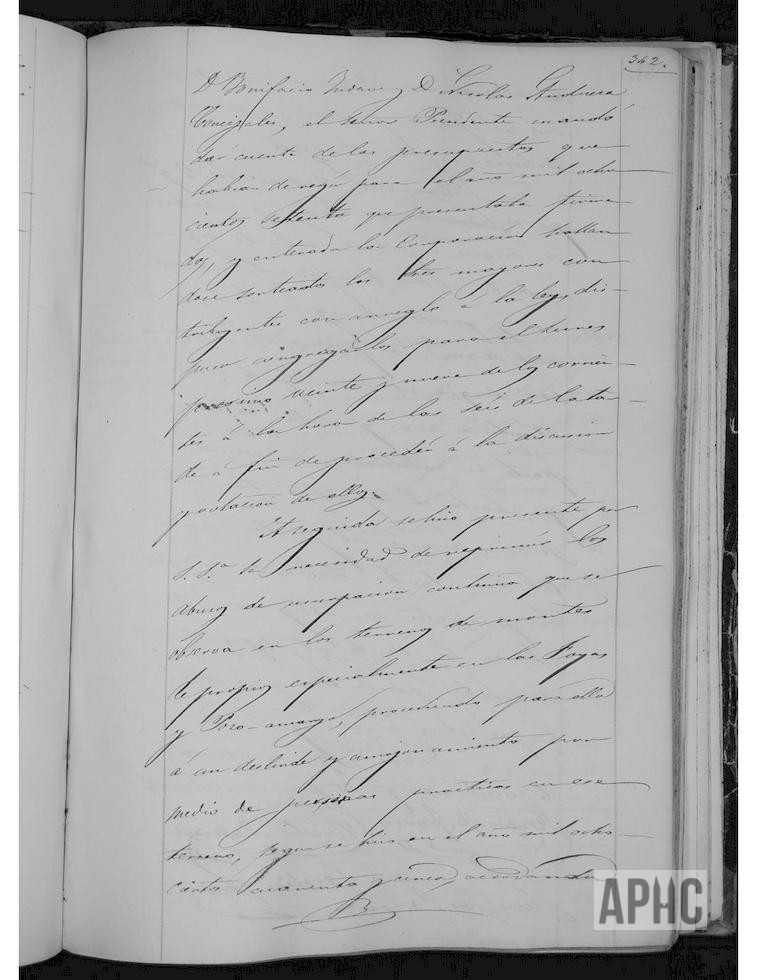 342.
D. Bonifacio Indave y D. Nicolas Andueza
Concejales, el Señor Presidente mandó
dar cuenta de los presupuestos que
habian de regir para el año mil ocho
cientos setenta que presentaba firma
dos, y enterada la Corporacion hallan
dose sorteados los tres mayores con
tribuyentes con arreglo á la ley, dis-
puso congregarlos para el lunes
procsimo veinte y nueve de los corrien-
tes á la hora de las seis de la tar-
de á fin de proceder á la discusion
y votacion de ellos.
A seguida se hizo presente por
S. Sª la necesidad de reprimir los
abusos de usurpacion continua que se
observa en los terrenos de montes
de propios especialmente en las Foyas
y Pozo-amargo, procediendo para ello
á un deslinde y amojonamiento por
medio de personas practicas en ese
terreno, segun se hizo en el año mil ocho-
cientos cuarenta y cinco, acordando
APHC